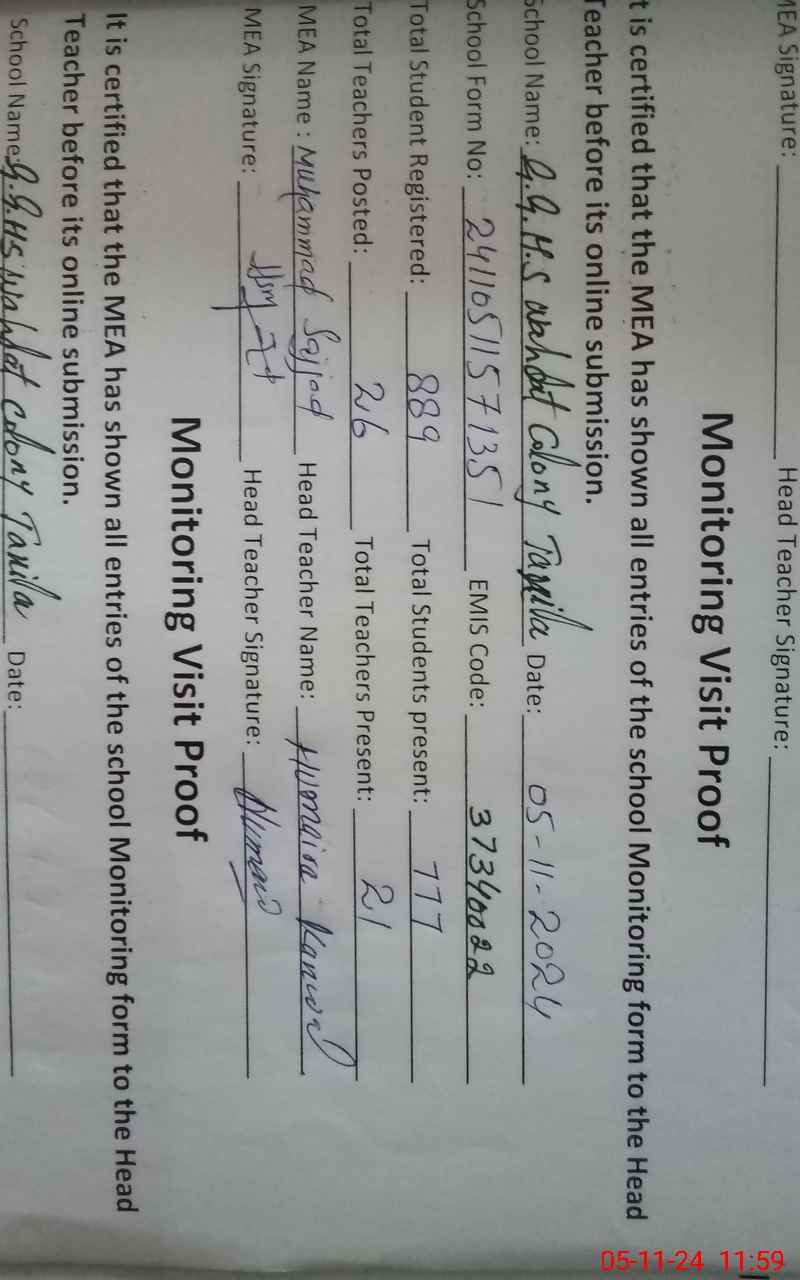 MEA Signature: Head Teacher Signature:
Monitoring Visit Proof
t is certified that the MEA has shown all entries of the school Monitoring form to the Head
Teacher before its online submission.
School Name: G.G.H.S wahdat Colony Taxila Date: 05-11-2024
School Form No: 24110511571351 EMIS Code: 37340022
Total Student Registered: 889 Total Students present: 777
Total Teachers Posted: 26 Total Teachers Present: 21
MEA Name : Muhammad Sajjad Head Teacher Name: Humaira Kanwal
MEA Signature: Head Teacher Signature: Humaira
Monitoring Visit Proof
It is certified that the MEA has shown all entries of the school Monitoring form to the Head
Teacher before its online submission.
School Name: G.G.HS wahdat Colony Taxila Date:
05-11-24 11:59